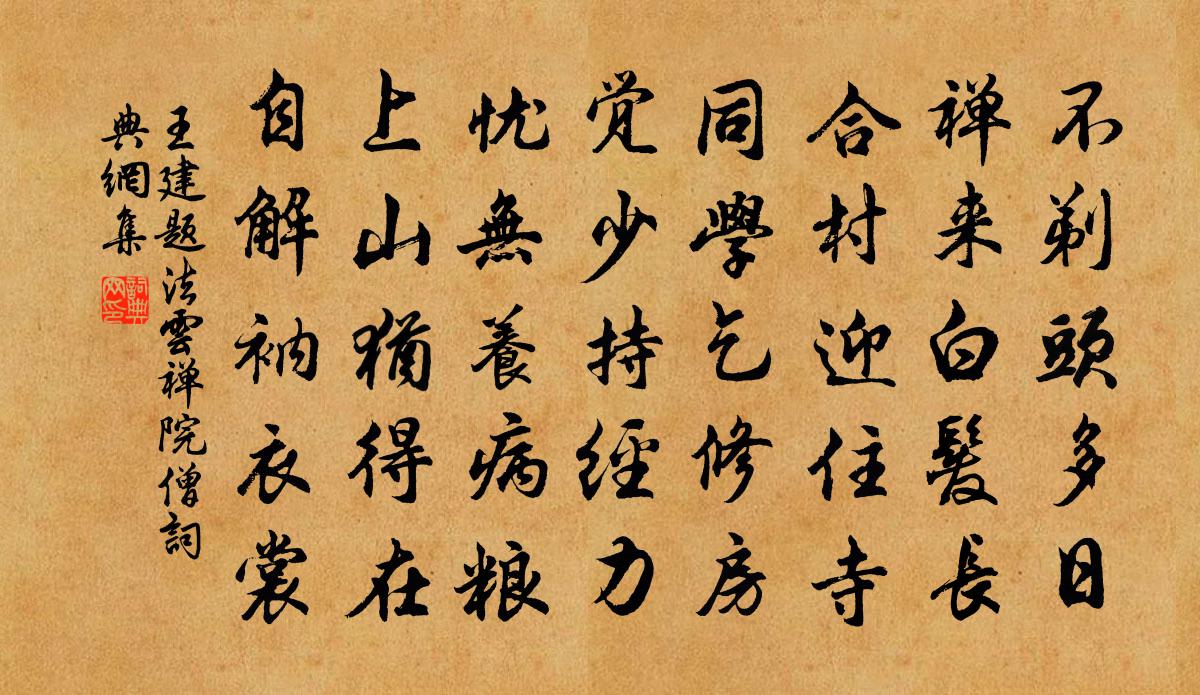 不剃頭多日
禅来白髮長
合村迎住寺
同學乞修房
覚少持經力
忧無養病粮
上山猶得在
自解衲衣裳
王建题法雲禅院僧詞
典網集
詞典
网印